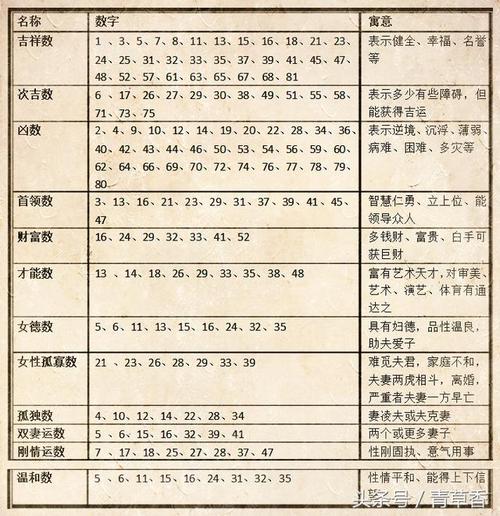 名称 数字 寓意
吉祥数 1 、3、5、7、8、11、13、15、16、18、21、23、 表示健全、幸福、名誉
24、25、31、32、33、35、37、39、41、45、47、 等
48、52、57、61、63、65、67、68、81
次吉数 6 、17、26、27、29、30、38、49、51、55、58、 表示多少有些障碍，但
71、73、75 能获得吉运
凶数 2、4、9、10、12、14、19、20、22、28、34、36、 表示逆境、沉浮、薄弱、
40、42、43、44、46、50、53、54、56、59、60、 病难、困难、多灾等
62、64、66、69、70、72、74、76、77、78、79、
80
首领数 3、13、16、21、23、29、31、37、39、41、45、 智慧仁勇、立上位、能
47 领导众人
财富数 16、24、29、32、33、41、52 多钱财、富贵、白手可
获巨财
才能数 13 、14、18、26、29、33、35、38、48 富有艺术天才，对审美、
艺术、演艺、体育有通
达之
女德数 5、6、11、13、15、16、24、32、35 具有妇德，品性温良，
助夫爱子
女性孤寡数 21 、23、26、28、29、33、39 难觅夫君，家庭不和，
夫妻两虎相斗，离婚，
严重者夫妻一方早亡
孤独数 4、10、12、14、22、28、34 妻凌夫或夫克妻
双妻运数 5 、6、15、16、32、39、41 两个或更多妻子
刚情运数 7 、17、18、25、27、28、37、47 性刚固执、意气用事
温和数 5 、6、11、15、16、24、31、32、35 性情平和、能得上下信
头条号 / 青草香